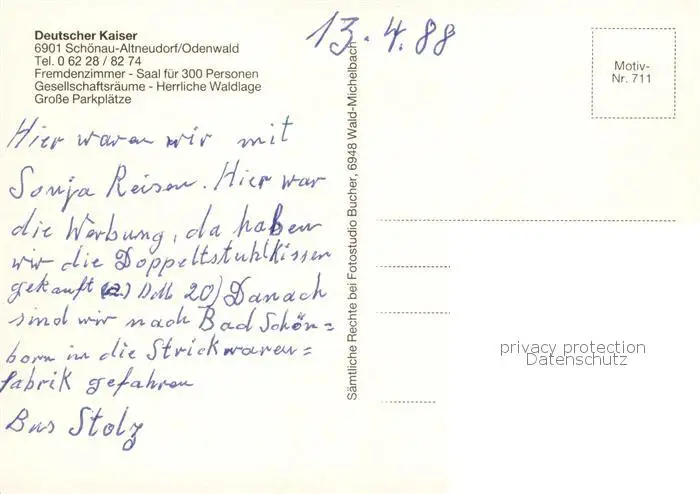 13.4.88
Deutscher Kaiser
6901 Schönau-Altneudorf/Odenwald
Tel. 0 62 28 / 82 74
Fremdenzimmer - Saal für 300 Personen
Gesellschaftsräume - Herrliche Waldlage
Große Parkplätze
Motiv-
Nr. 711
Hier waren wir mit
Sonja Reisen. Hier war
die Werbung, da haben
wir die Doppeltstuhlkissen
gekauft (2) DM 20) Danach
sind wir nach Bad Schön=
born in die Strickwaren=
fabrik gefahren
Bus Stolz
Sämtliche Rechte bei Fotostudio Bucher, 6948 Wald-Michelbach
privacy protection
Datenschutz